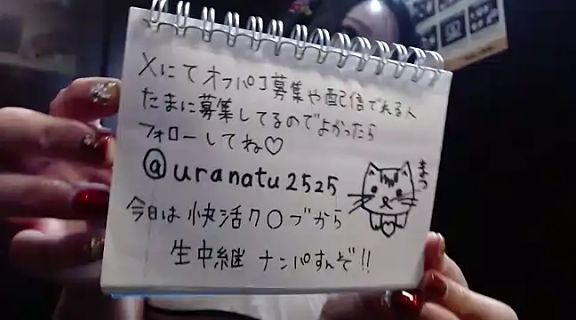 Xにてオフパコ募集や配信でれる人
たまに募集してるのでよかったら
フォローしてね♡
@uranatu2525
まっ
今日は快活ク〇ブから
生中継ナンパすんぞ!!